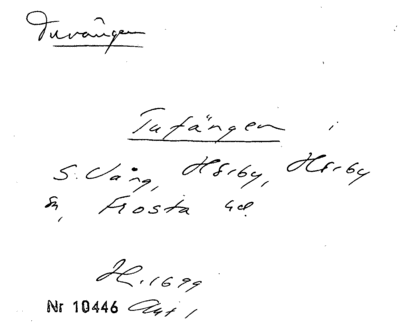 Tuvången
Tufången i
S. Vång, Hörby, Hörby
sn, Frosta hd.
H. 1699
Nr 10446 Akt 1